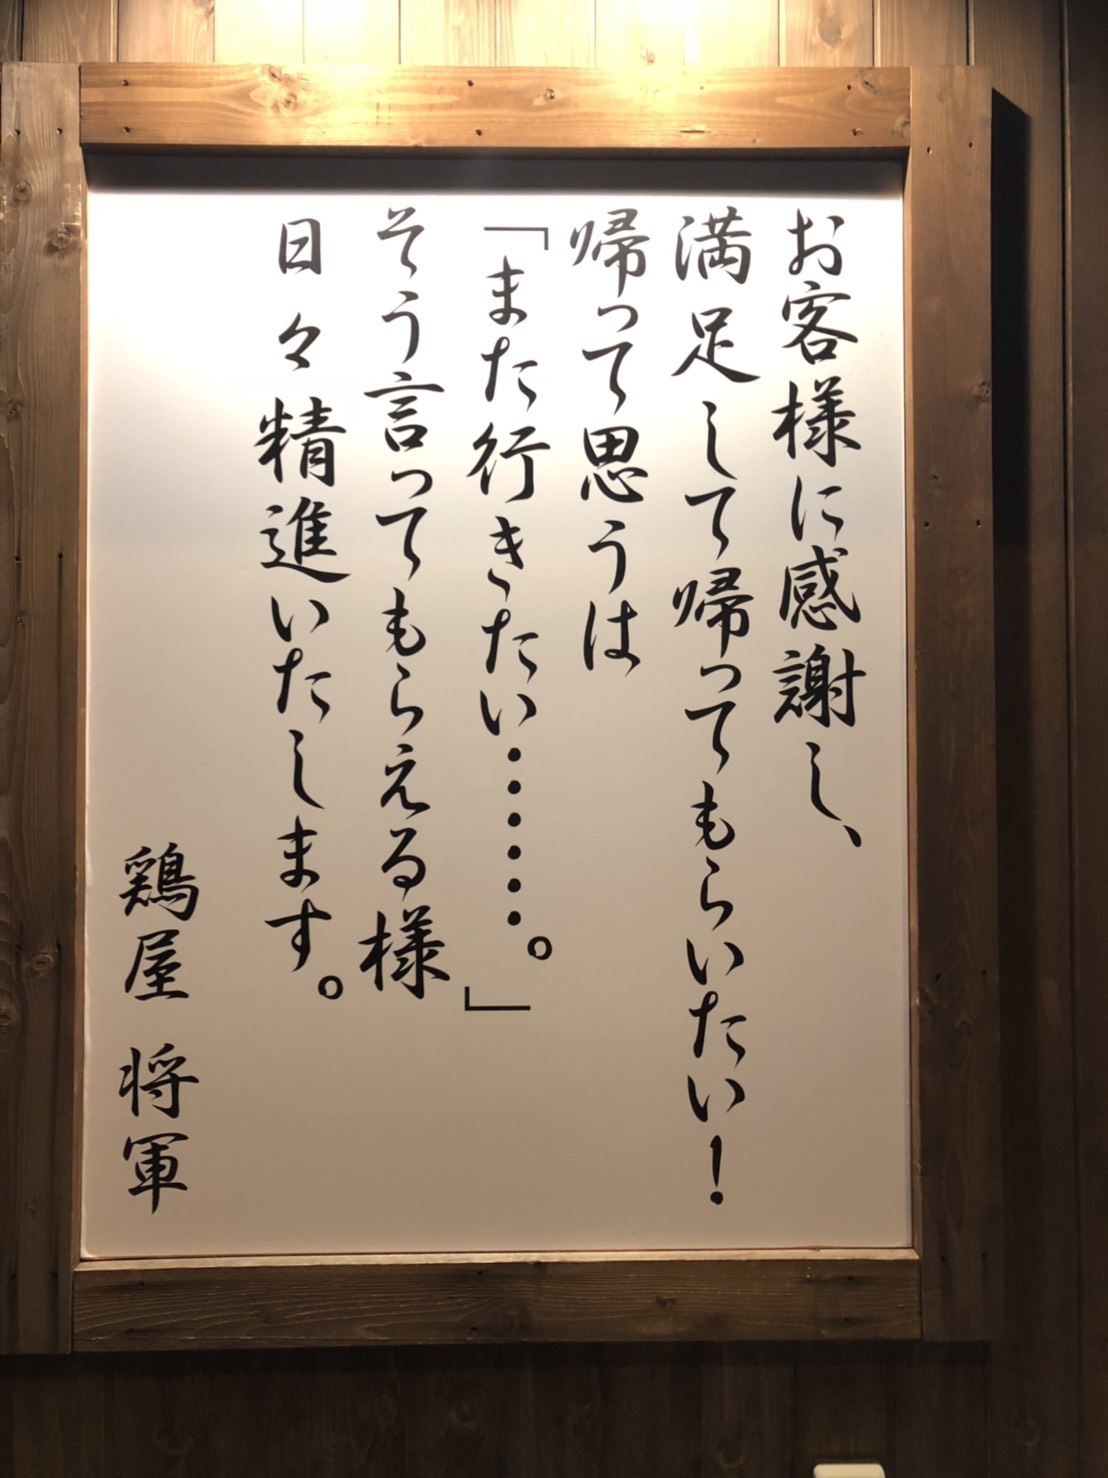 お客様に感謝し、
満足して帰ってもらいたい！
帰って思うは
「また行きたい……。」
そう言ってもらえる様
日々精進いたします。
鶏屋 将軍